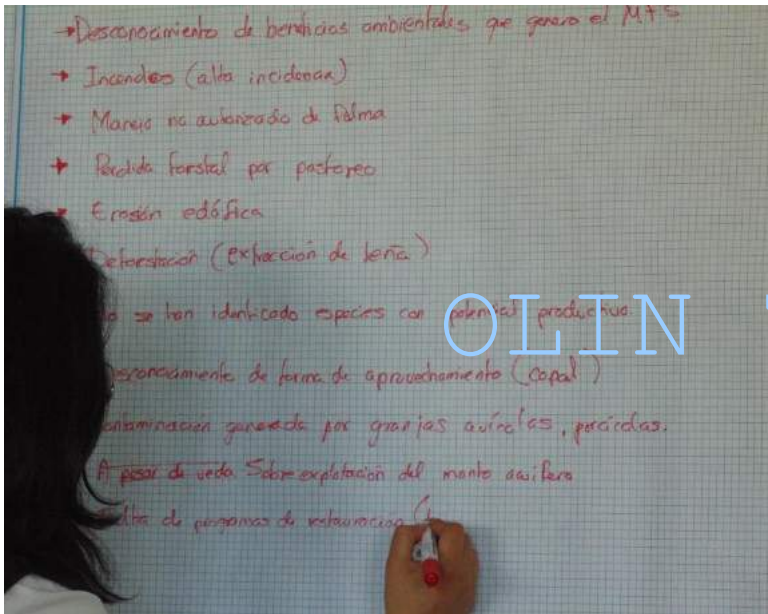 →Desconocimiento de beneficios ambientales que genera el MFS
→ Incendios (alta incidencia)
→ Manejo no autorizado de Palma
→ Perdida forestal por pastoreo
→ Erosión edáfica
Deforestación (extracción de leña)
se han identificado especies con potencial productivo
de forma de aprovechamiento (copal)
generada por granjas avícolas, porcícolas.
A pesar de veda Sobreexplotación del manto acuífero
de programas de restauración (
OLIN